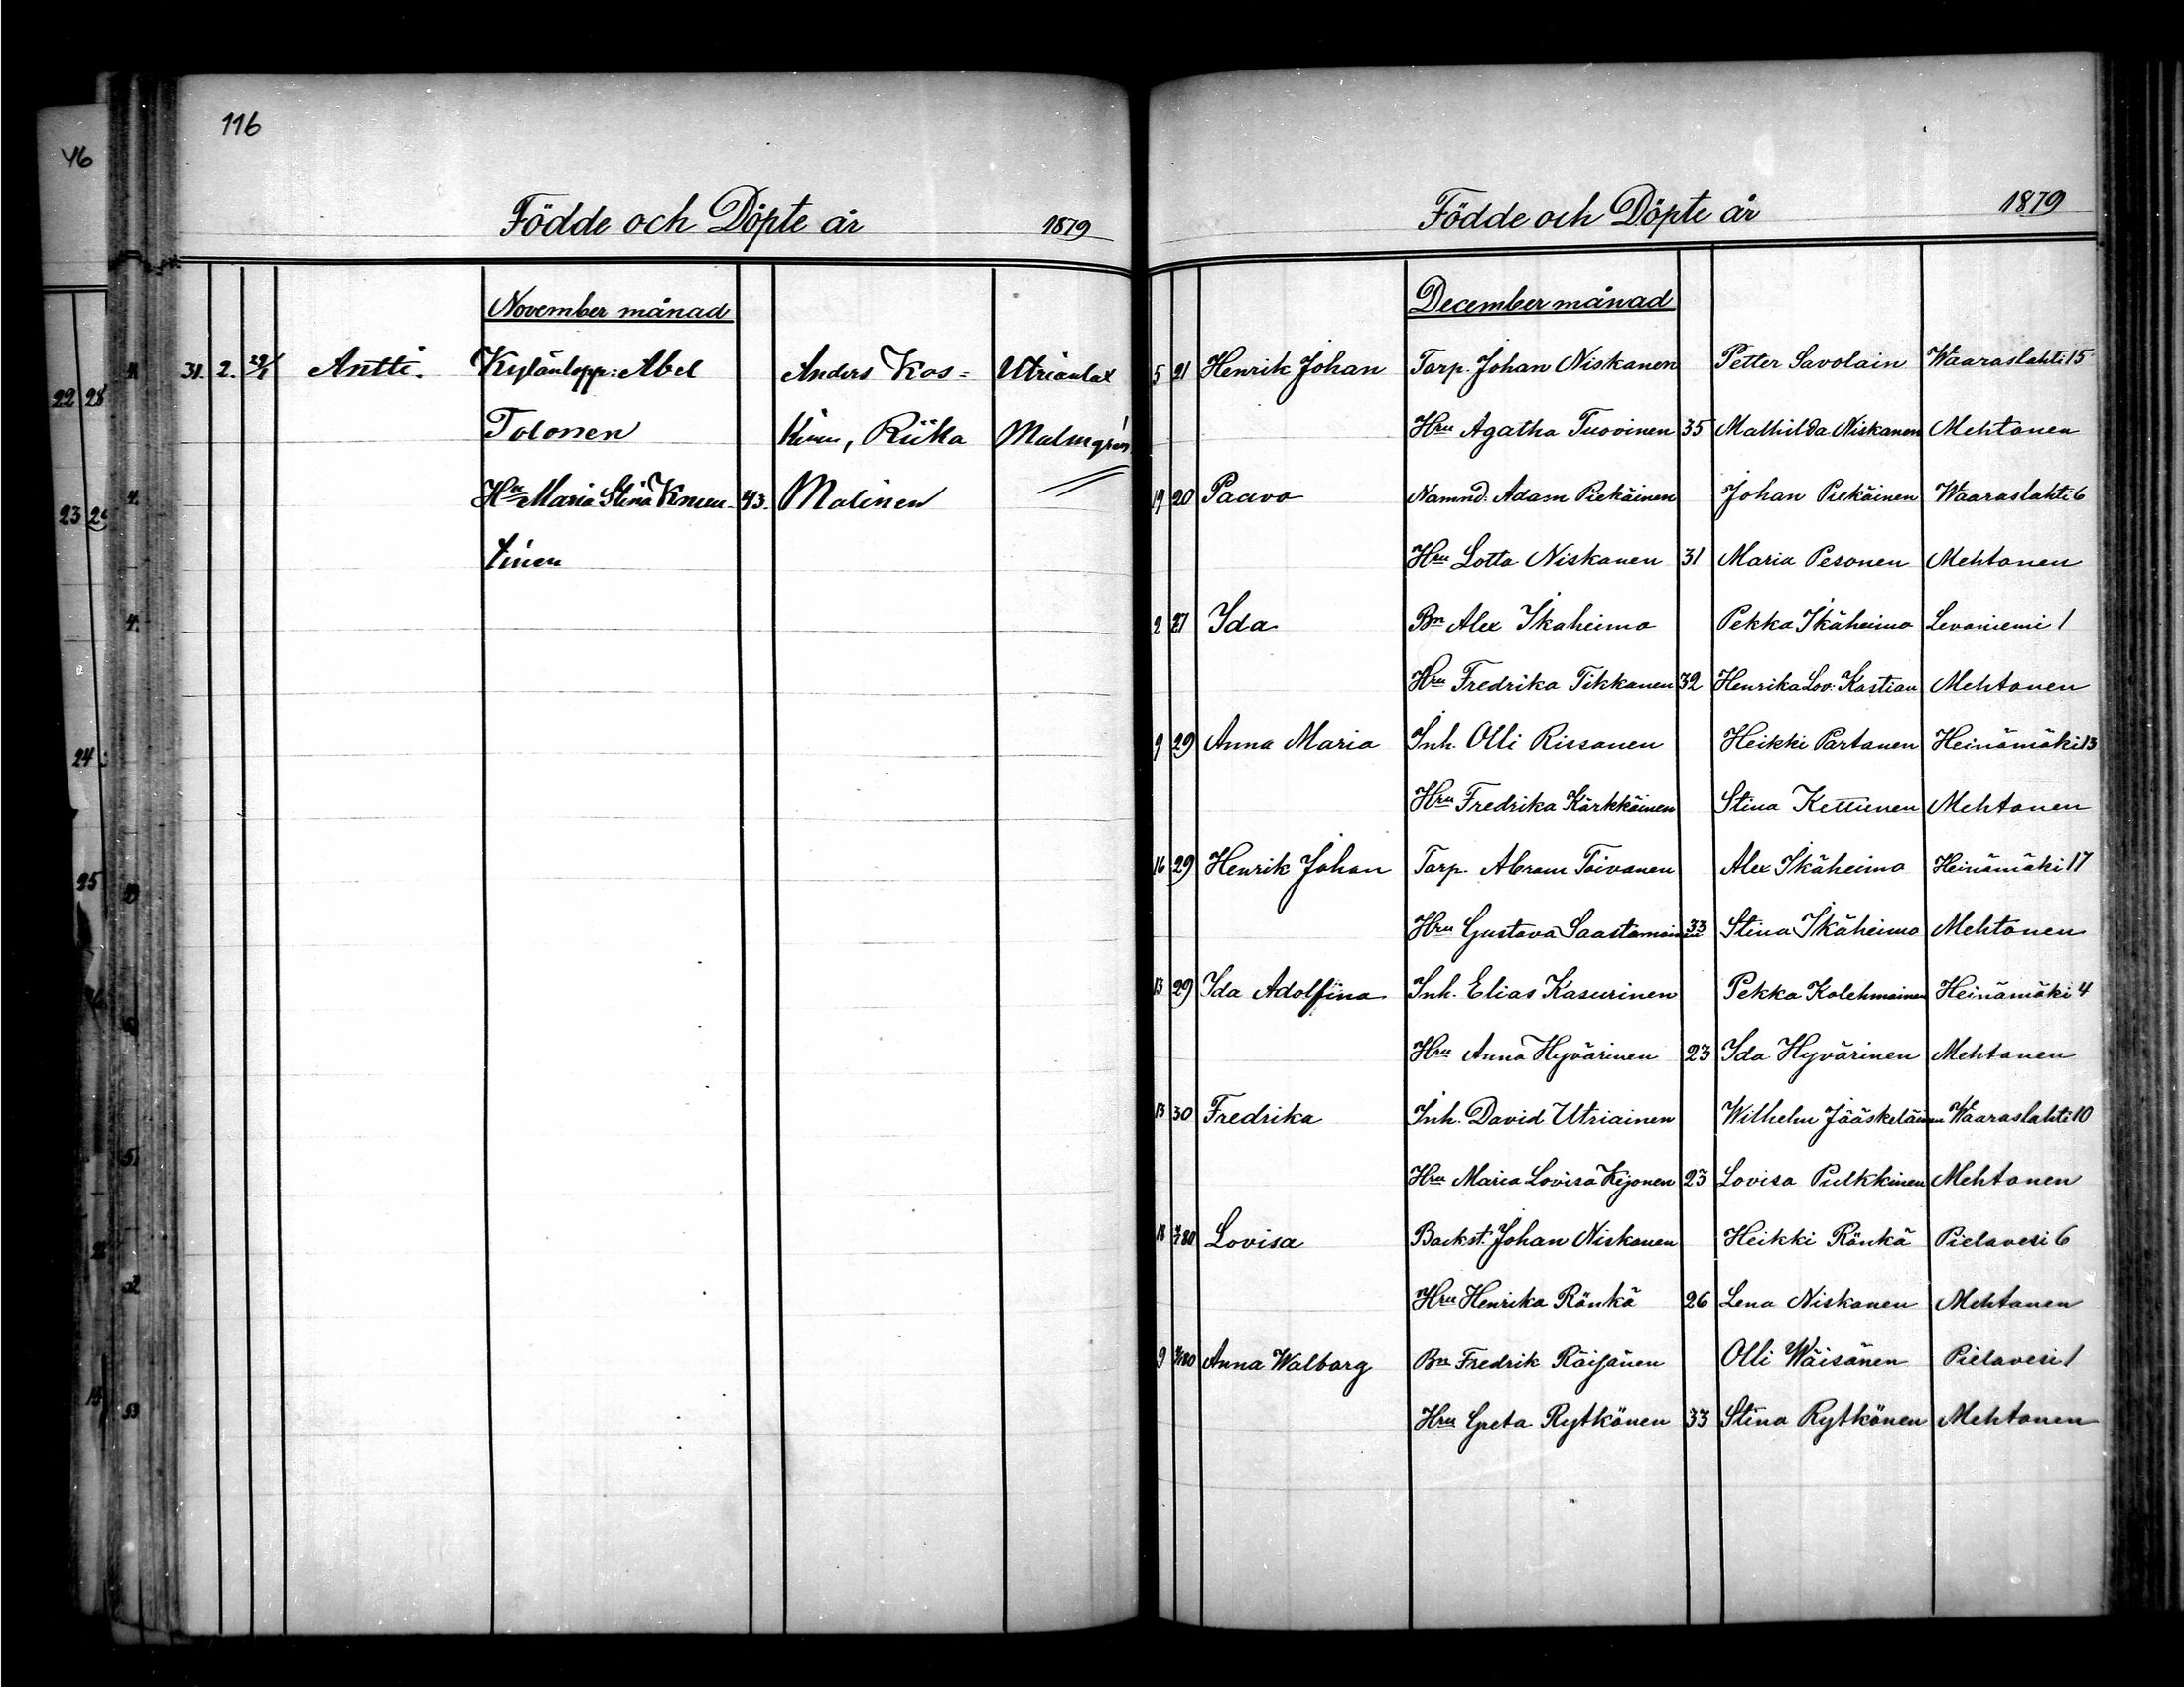 116
46
Födde och Döpte år 1879
November månad
31. 2. 29/1 Antti. Kylänlopp: Abel Anders Kos= Utrianlax
Tolonen kinen, Riika Malmgrén
Hu Maria Stina Knuu- 43. Malinen
tinen
22 28
23
24
25
Födde och Döpte år 1879
December månad
5 21 Henrik Johan Torp. Johan Niskanen Petter Savolain Waaraslahti 15
Hru Agatha Tuovinen 35 Mathilda Niskanen Mehtonen
19 20 Paavo Namnd. Adam Piekäinen Johan Piekäinen Waaraslahti 6
Hru Lotta Niskanen 31 Maria Pesonen Mehtonen
2 27 Ida Bn Alex Ikaheimo Pekka Ikäheimo Levaniemi 1
Hru Fredrika Tikkanen 32 Henrika Lov: Kastian Mehtonen
9 29 Anna Maria Inh. Olli Rissanen Heikki Partanen Heinämäki 13
Hru Fredrika Kärkkäinen Stina Kettunen Mehtonen
16 29 Henrik Johan Torp. Abram Toivanen Alex Ikäheimo Heinämäki 17
Hru Gustava Saastamoinen 33 Stina Ikäheimo Mehtonen
13 29 Ida Adolfina Inh. Elias Kasurinen Pekka Kolehmainen Heinämäki 4
Hru Anna Hyvärinen 23 Ida Hyvärinen Mehtonen
13 30 Fredrika Inh. David Utriainen Wilhelm Jääskeläinen Waaraslahti 10
Hru Maria Lovisa Kijonen 23 Lovisa Pulkkinen Mehtonen
18 Lovisa Backst. Johan Niskanen Heikki Rönkä Pielavesi 6
Hru Henrika Rönkä 26 Lena Niskanen Mehtonen
9 Anna Walborg Bn Fredrik Räisänen Olli Wäisänen Pielavesi 1
Hru Greta Rytkönen 33 Stina Rytkönen Mehtonen